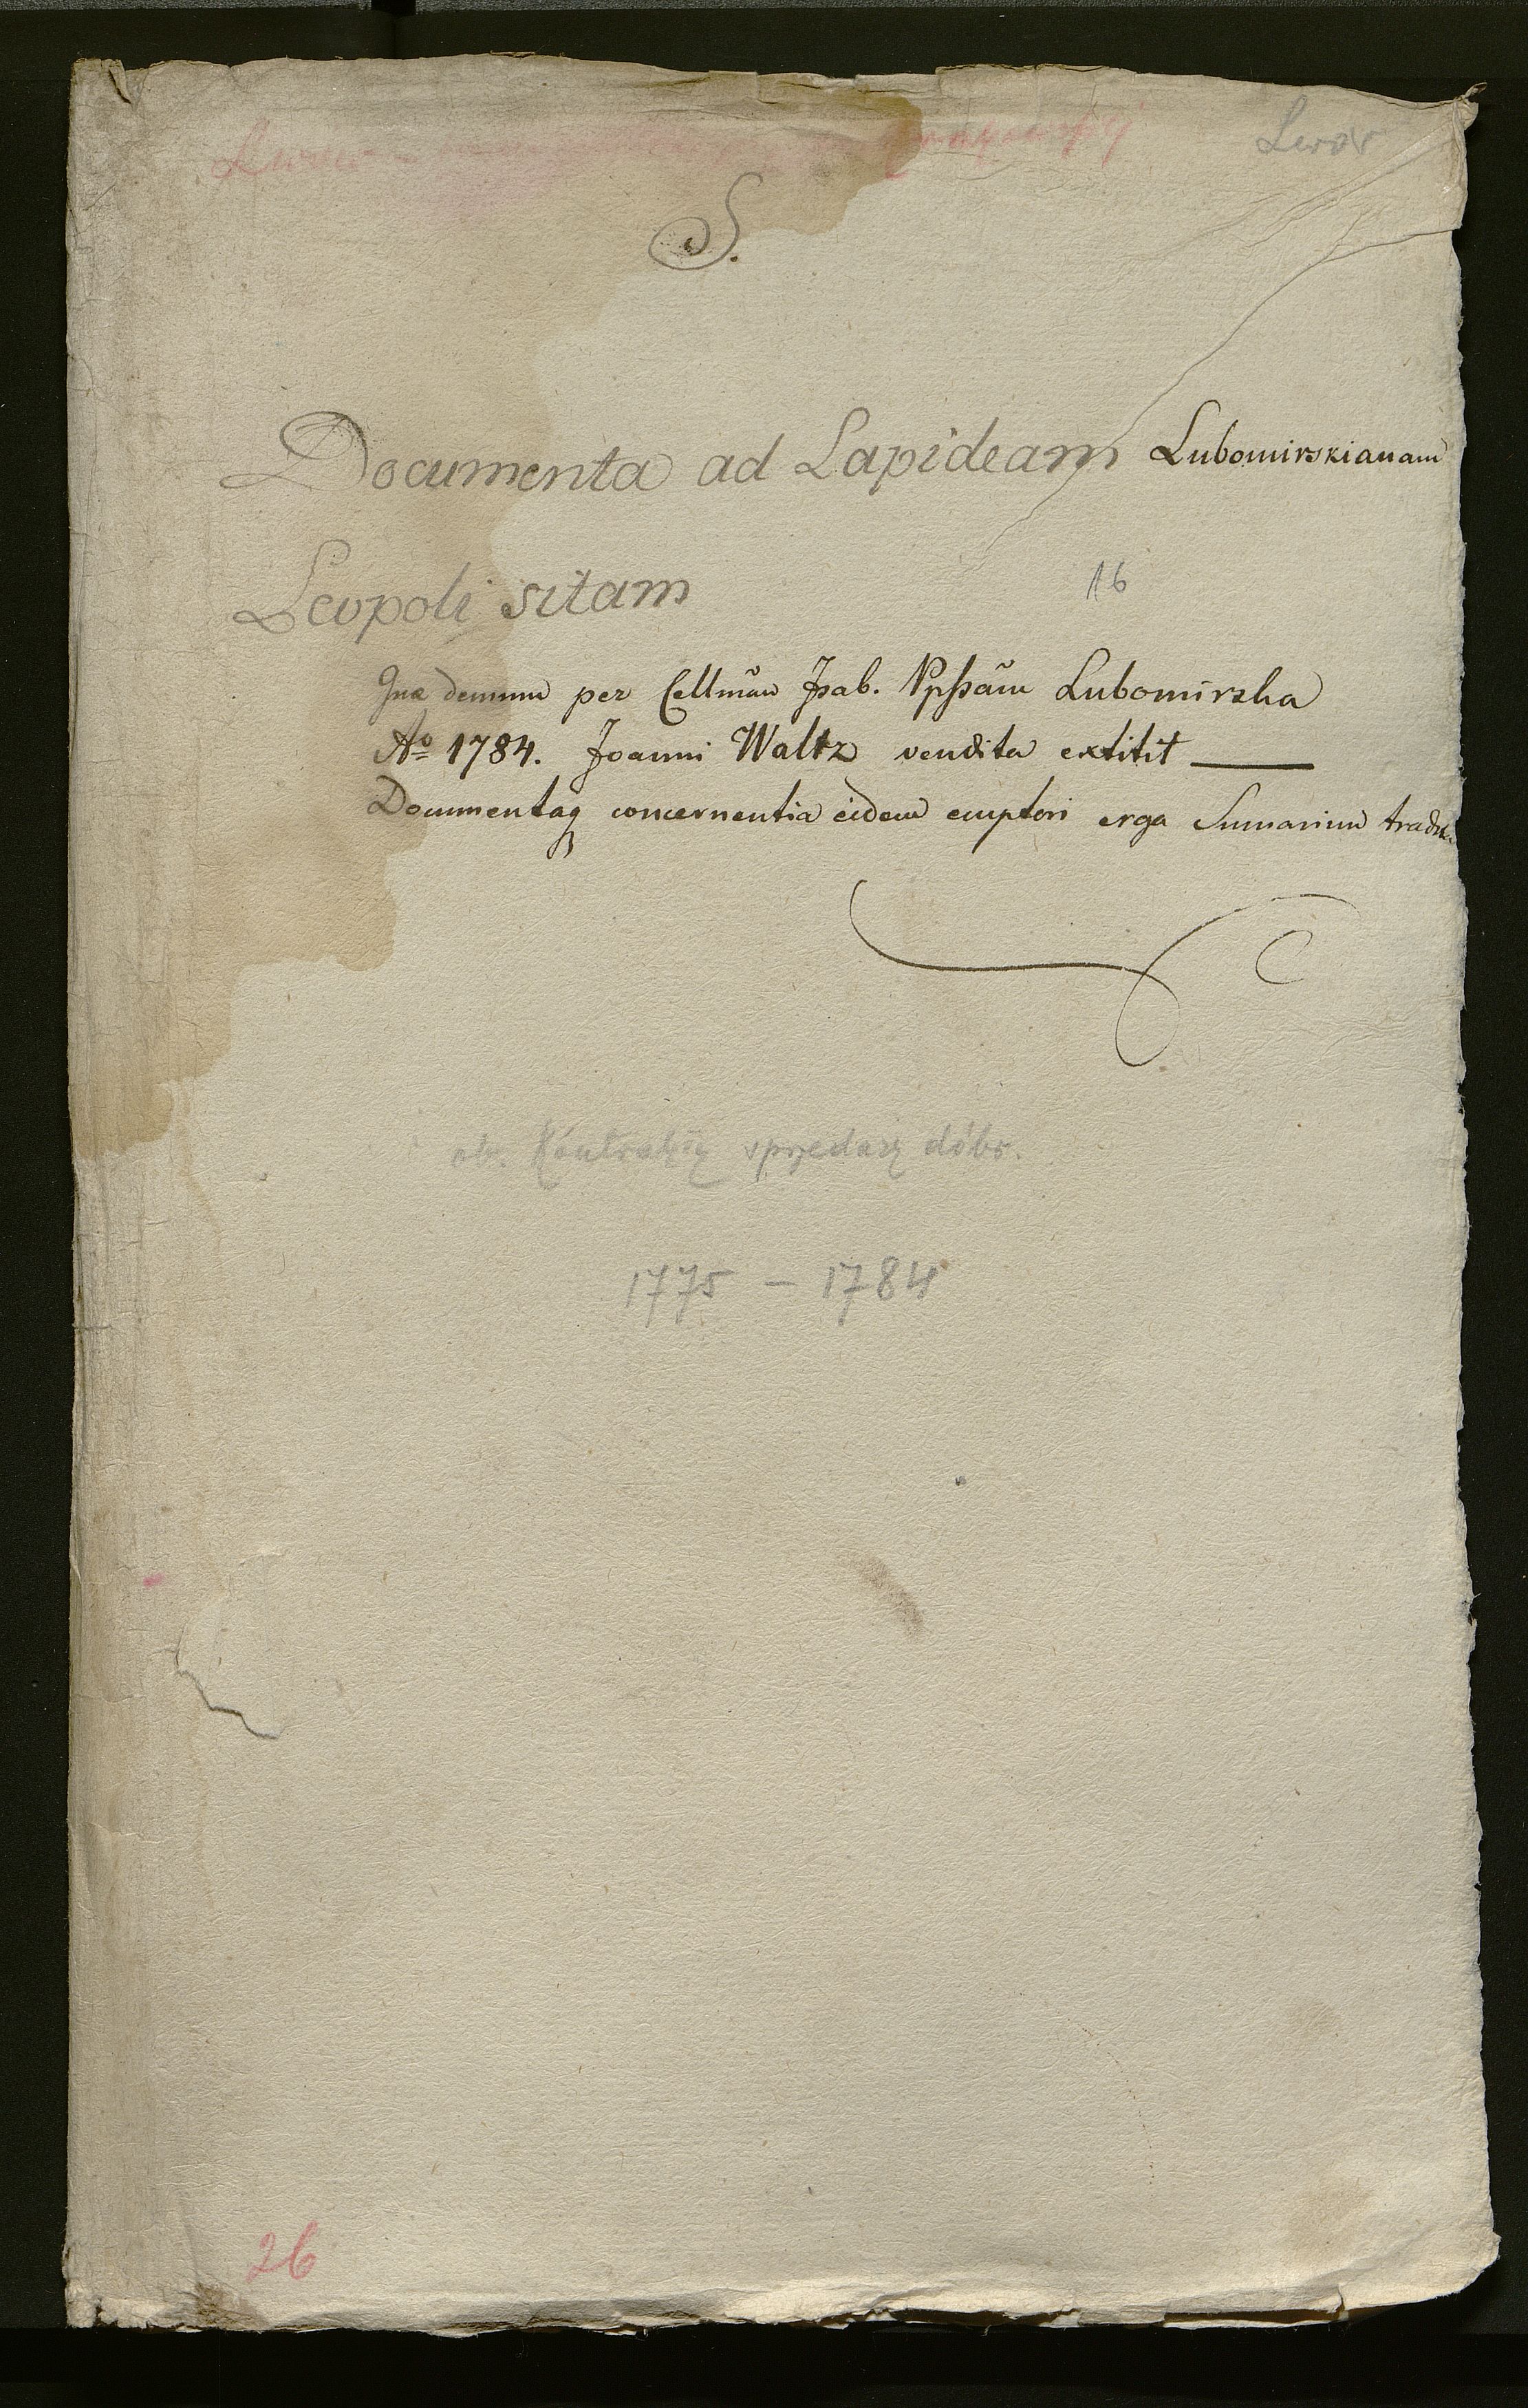 Lwów
S.
Documenta ad Lapideam Lubomirskianam
Leopoli sitam
16
Quæ demum per Cellm̃am Isab. Ppssãm Lubomirska
Aº 1784. Joanni Waltz vendita extitit
Documentaq concernentia eidem emptori erga Sumarium tradita
ob. Kontrakty sprzedaży dóbr.
1775 - 1784
26